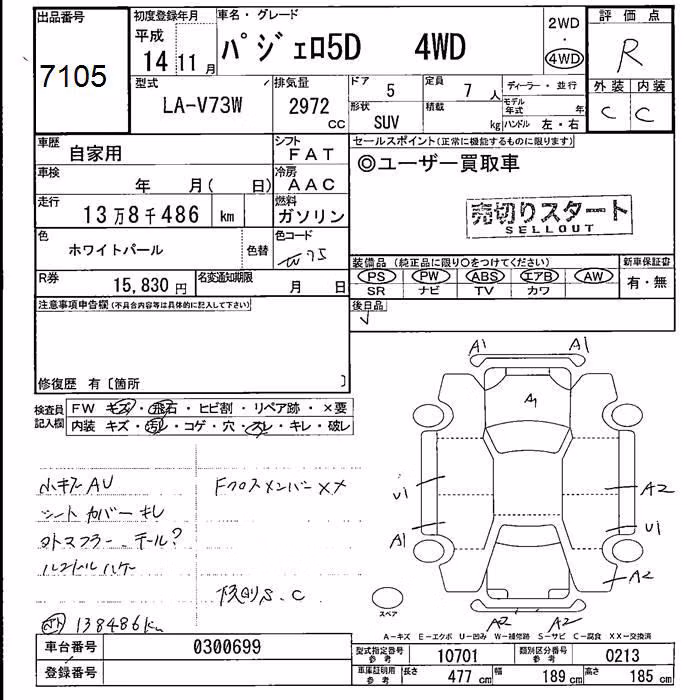 出品番号
7105
初度登録年月
平成
14 11月
車名・グレード
パジェロ5D 4WD
2WD
・
4WD
評価点
R
外装 内装
C C
型式
LA-V73W
排気量
2972
CC
ドア 5
定員 7 人
形状 SUV
積載 kg
ディーラー・並行
モデル年式 年
ハンドル 左・右
車歴 自家用
シフト FAT
車検 年 月( 日)
冷房 AAC
走行 13万8千486 km
燃料 ガソリン
色 ホワイトパール 色替
色コード W75
R券 15,830円
名変通知期限 月 日
セールスポイント(正常に機能するものに限ります)
◎ユーザー買取車
売切りスタート
SELLOUT
装備品(純正品に限り○をつけてください)
PS PW ABS エアB AW
SR ナビ TV カワ
新車保証書
有・無
後日品
注意事項申告欄(不具合内容等は具体的に記入して下さい)
修復歴 有〔箇所 〕
検査員記入欄
FW キズ・飛石・ヒビ割・リペア跡・×要
内装 キズ・汚レ・コゲ・穴・スレ・キレ・破レ
小キズ AU
シートカバー キレ
タトマフラー、テール?
Fクロスメンバー XX
下廻りS、C
138486km
A1 A1
A1
U1
A1
A2
U1
A2
A2 A2
スペア
A-キズ E-エクボ U-凹み W-補修跡 S-サビ C-腐食 XX-交換済
車台番号 0300699
登録番号
型式指定番号参考 10701
類別区分番号参考 0213
車庫証明用参考 長さ 477 cm 幅 189 cm 高さ 185 cm